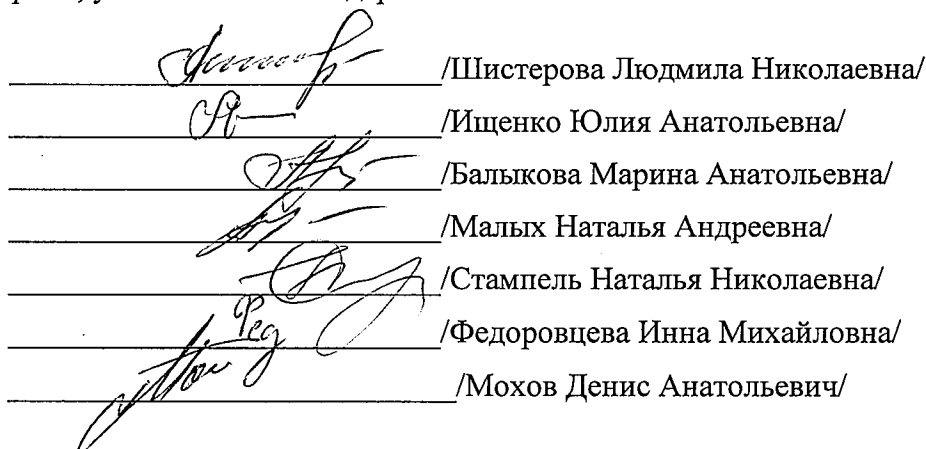 /Шистерова Людмила Николаевна/
/Ищенко Юлия Анатольевна/
/Балыкова Марина Анатольевна/
/Малых Наталья Андреевна/
/Стампель Наталья Николаевна/
Фед /Федоровцева Инна Михайловна/
/Мохов Денис Анатольевич/